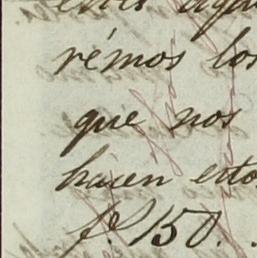 rémos los
que nos
hacen esto
f. 150.